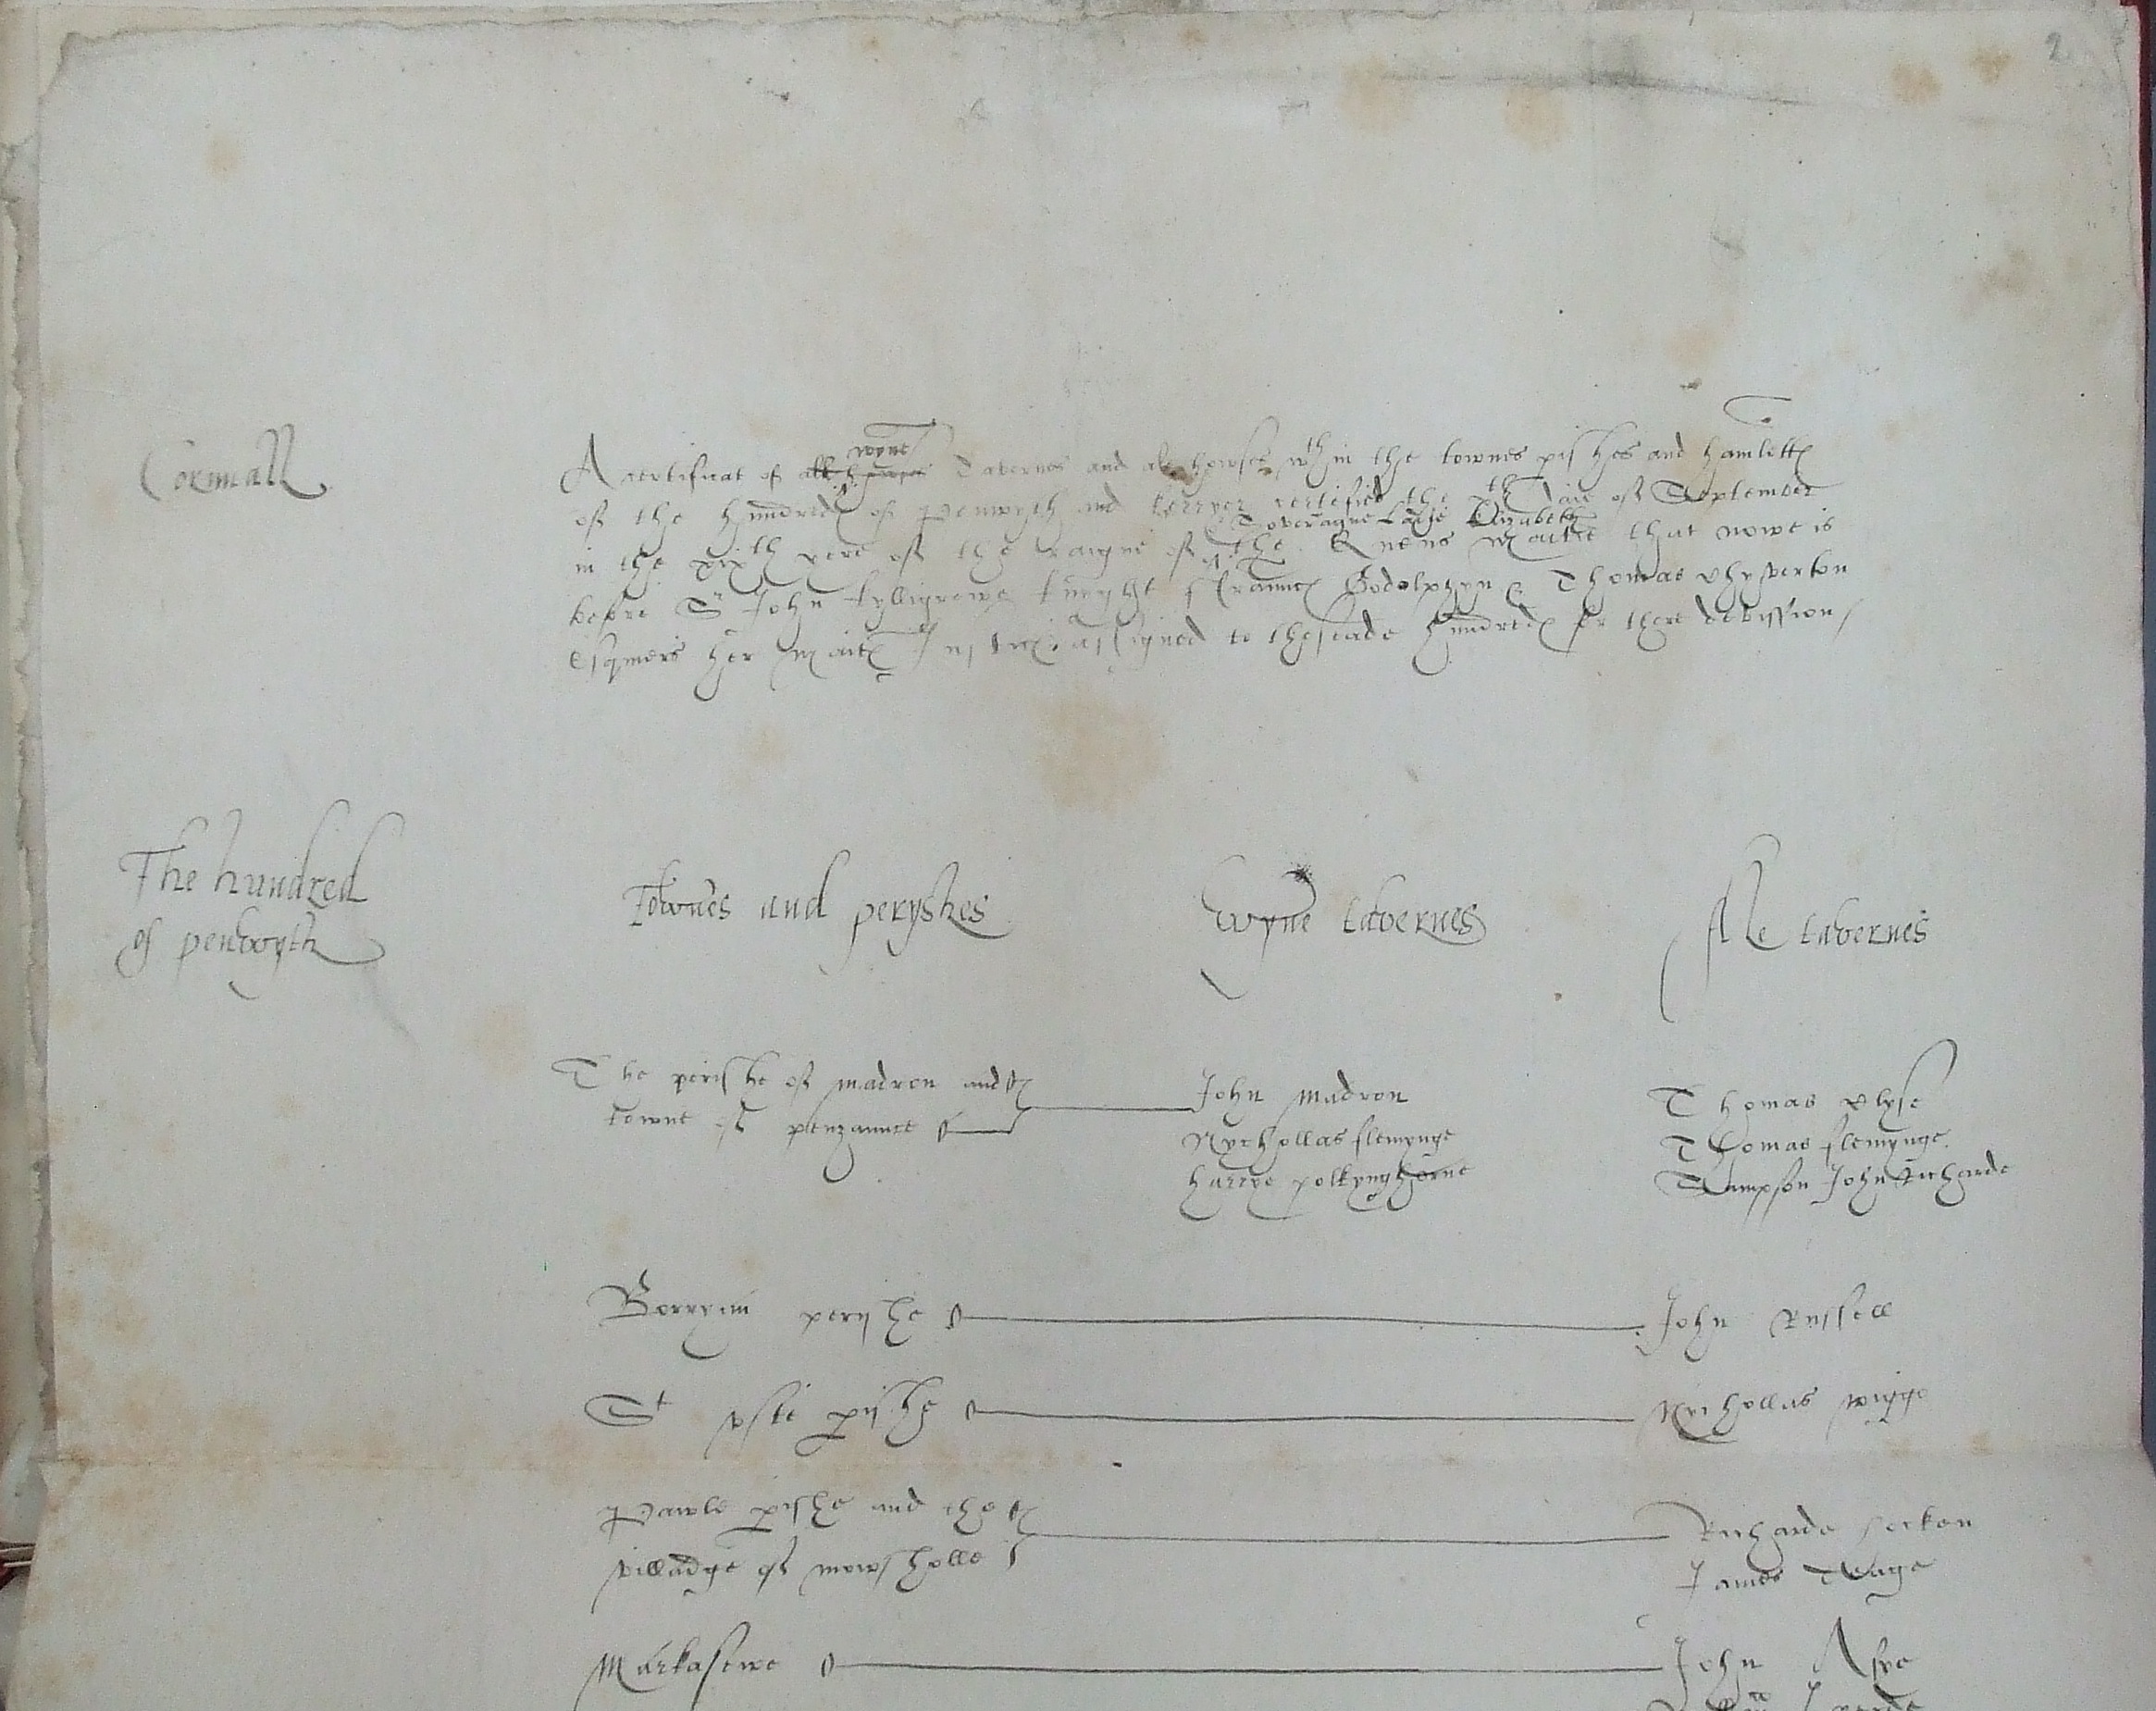 2
Cornwall
A certificat of all howses wyne Tavernes and ale howses wth in the townes pishes and hamletts
of the hundreds of Penwyth and kerryer certefied the xth Daie of September
in the xixth yere of the raigne of the Soveraigne Ladie Elizabeth Quens maitie that nowe is
before Sr John kylligrewe knyght ffrauncs Godolphyn & Thomas Chyverton
esquiers her maits Justics assigned to theseade hundreds for there devission /
The hundred
of penwyth
Townes and peryshes
wyne tavernes
Ale tavernes
The perishe of madron and
towne of penzaunce
John madron
Nychollas flemynge
harrye polkynghorne
Thomas Clyse
Thomas flemynge
Sampson John Richarde
Borryan peryshe
John Russell
St uste pishe
Nychollas wigge
Pawle pishe and the
villadge of mowsholle
Richarde
James
Markasewe
John Asye